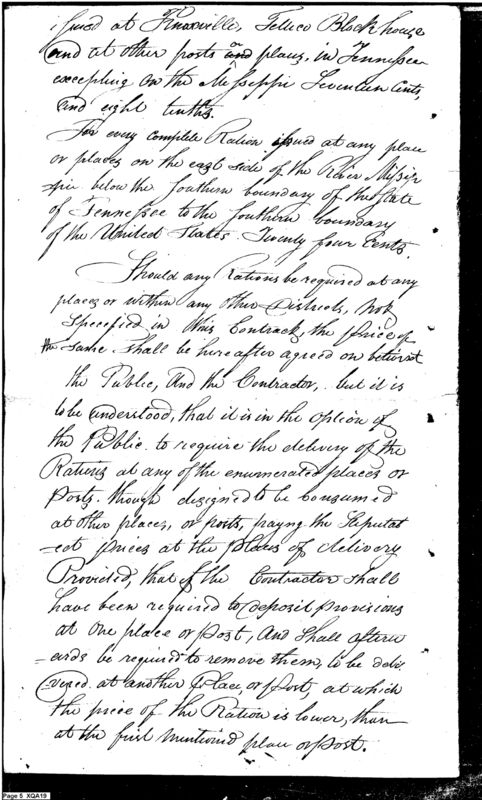 issued at Knoxville, Tellico Block house
and at other posts or and places, in Tennessee
excepting on the Missippi Seventeen Cents,
and eight tenths.
For every complete Ration issued at any place
or places on the east side of the River Missip
-pie below the Southern boundary of the State
of Tennessee to the Southern boundary
of the United States. Twenty four Cents.
Should any Rations be required at any
places or within any other Districts, not
Specefied in this Contract, the price of
the same shall be hereafter agreed on betwixt
the Public, and the Contractor, but it is
to be understood, that it is in the option of
the Public to require the delivery of the
Rations at any of the enumerated places or
Posts. though designed to be Consumed
at other places, or posts, paying the Stipulat
-ed prices at the places of delivery
Provided, that if the Contractor shall
have been required to deposit provisions
at one place or post, and shall afterw
-ards be required to remove them, to be deli
-vered at another place, or post, at which
the price of the Ration is lower, than
at the first mentioned place or post.
Page 5 XQA19